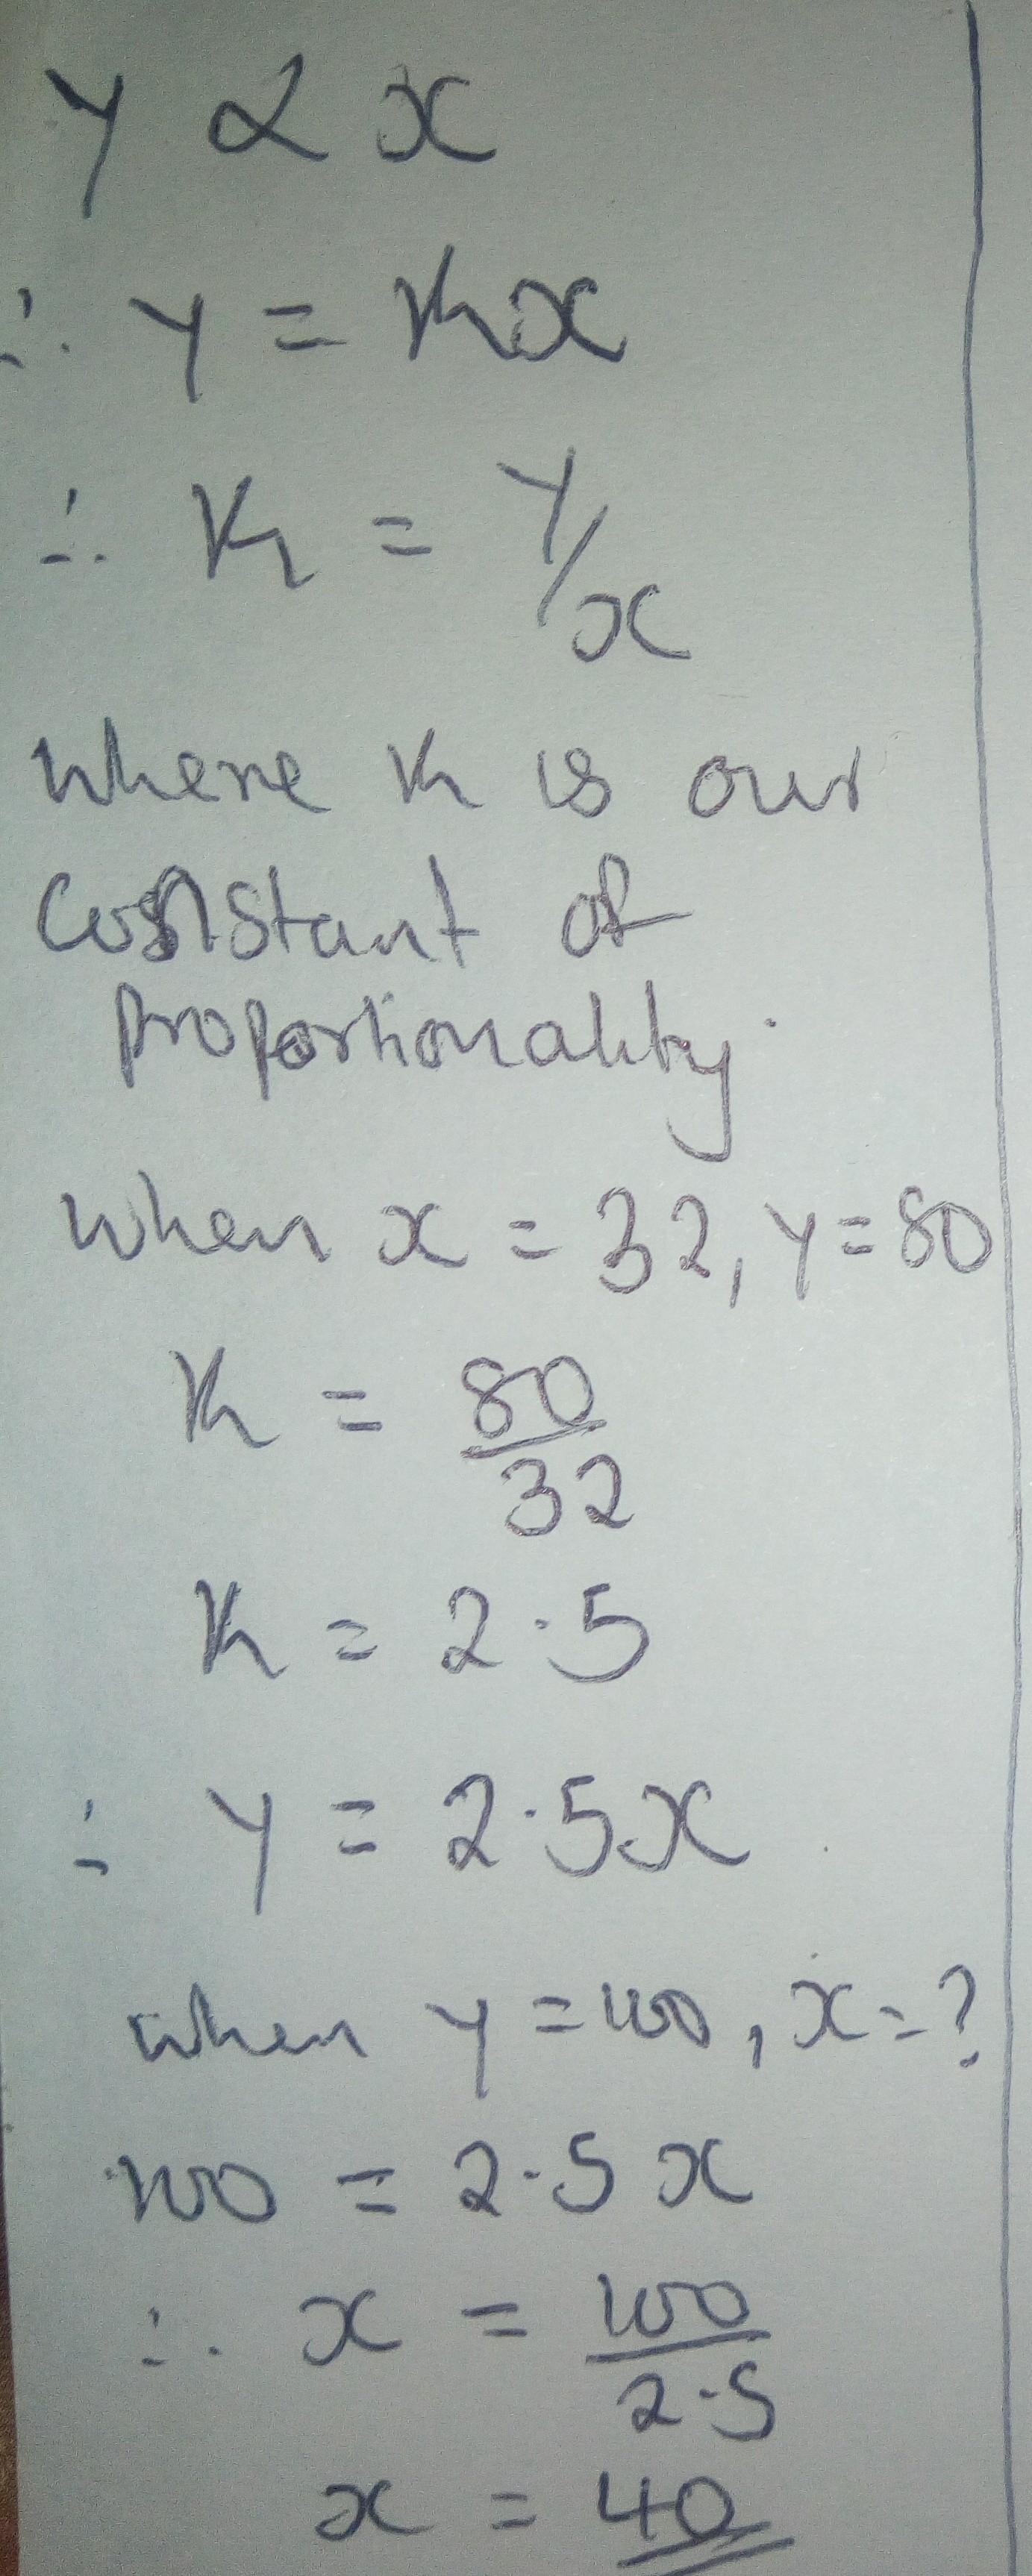 y ∝ x
∴ y = kx
∴ k = y/x
where k is our
constant of
proportionality.
when x = 32, y = 80
k = 80/32
k = 2.5
∴ y = 2.5x
when y = 100, x = ?
100 = 2.5x
∴ x = 100/2.5
x = 40